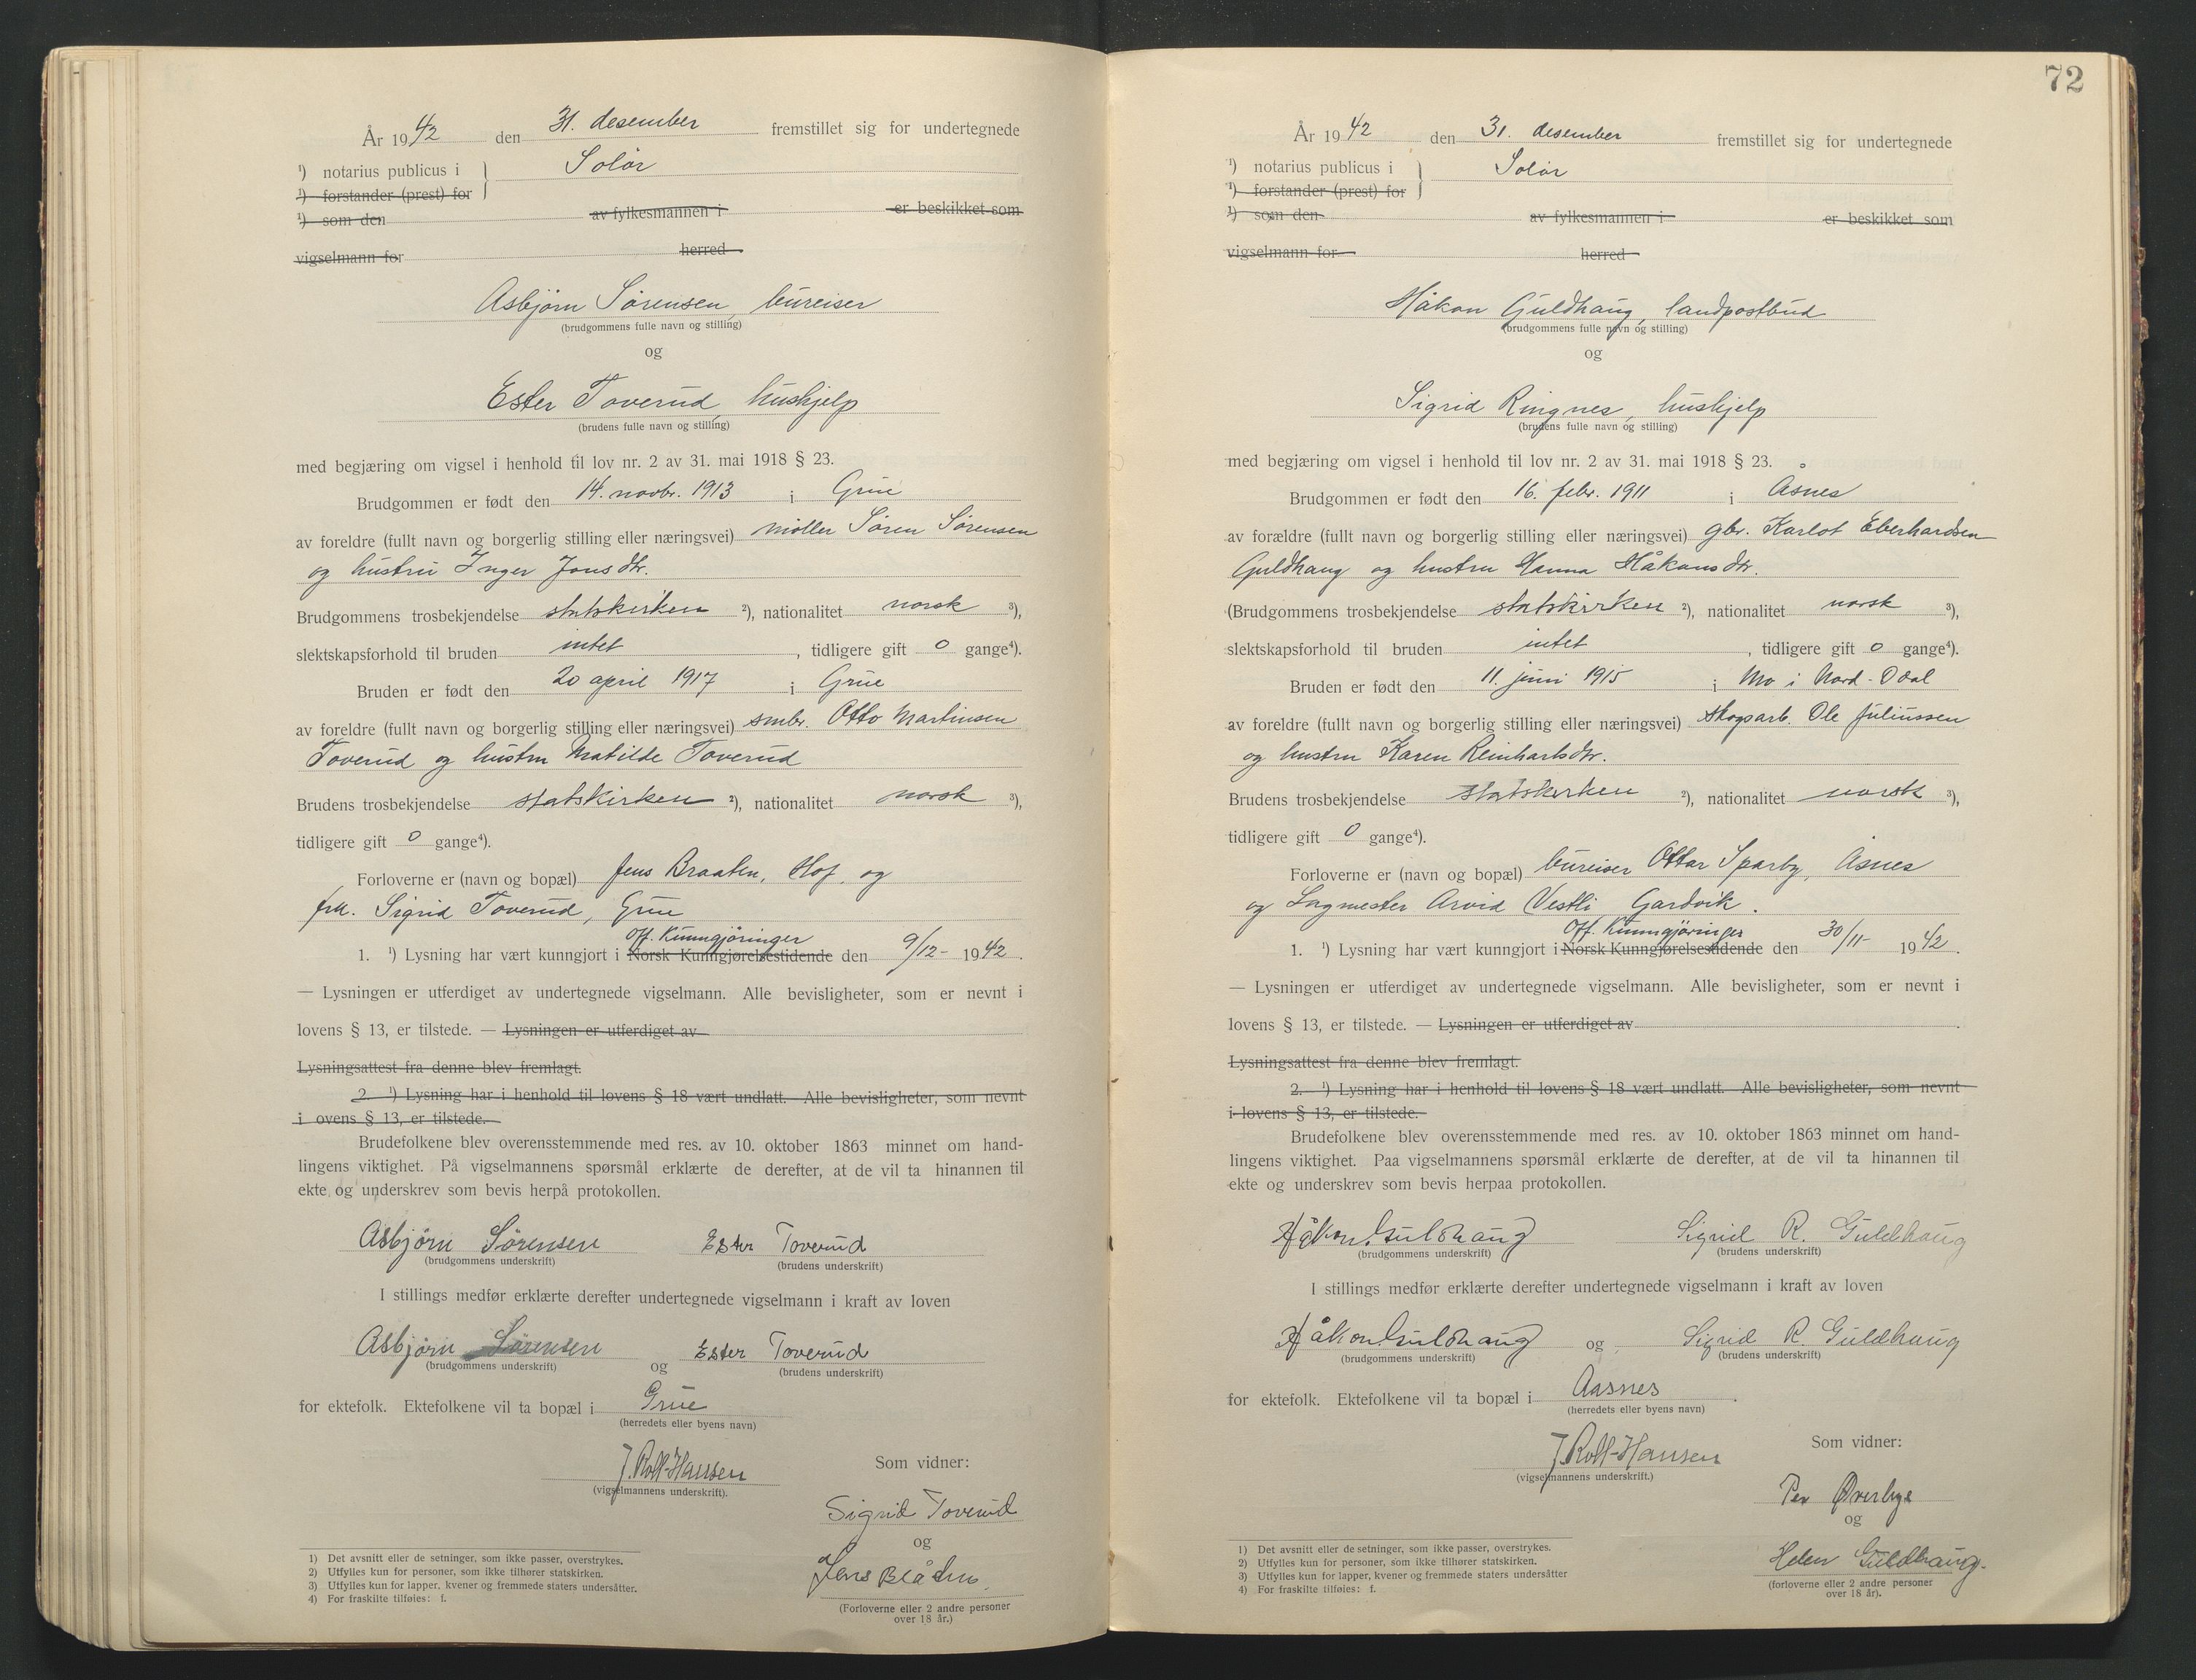 År 1942 den 31. desember fremstillet sig for undertegnede
¹) notarius publicus i } Solør
¹) forstander (prest) for
¹) som den av fylkesmannen i er beskikket som
vigselmann for herred
Asbjørn Sørensen, bureiser
(brudgommens fulle navn og stilling)
og
Ester Toverud, hushjelp
(brudens fulle navn og stilling)
med begjæring om vigsel i henhold til lov nr. 2 av 31. mai 1918 § 23.
Brudgommen er født den 14. novbr. 1913 i Grue
av foreldre (fullt navn og borgerlig stilling eller næringsvei) møller Søren Sørensen
og hustru Inger Jonsdtr.
Brudgommens trosbekjendelse statskirken ²), nationalitet norsk ³),
slektskapsforhold til bruden intet, tidligere gift 0 gange⁴).
Bruden er født den 20 april 1917 i Grue
av foreldre (fullt navn og borgerlig stilling eller næringsvei) smbr. Otto Martinsen
Toverud og hustru Matilde Toverud
Brudens trosbekjendelse statskirken ²), nationalitet norsk ³),
tidligere gift 0 gange⁴).
Forloverne er (navn og bopæl) Jens Braaten, Hof, og
frk. Sigrid Toverud, Grue
Off. Kunngjøringer
1. ¹) Lysning har vært kunngjort i Norsk Kunngjørelsestidende den 9/12- 1942.
— Lysningen er utferdiget av undertegnede vigselmann. Alle bevisligheter, som er nevnt i
lovens § 13, er tilstede. — Lysningen er utferdiget av
Lysningsattest fra denne blev fremlagt.
2. ¹) Lysning har i henhold til lovens § 18 vært undlatt. Alle bevisligheter, som nevnt
i ovens § 13, er tilstede.
Brudefolkene blev overensstemmende med res. av 10. oktober 1863 minnet om hand-
lingens viktighet. På vigselmannens spørsmål erklærte de derefter, at de vil ta hinannen til
ekte og underskrev som bevis herpå protokollen.
Asbjørn Sørensen Ester Toverud
(brudgommens underskrift) (brudens underskrift)
I stillings medfør erklærte derefter undertegnede vigselmann i kraft av loven
Asbjørn Sørensen og Ester Toverud
(brudgommens underskrift) (brudens underskrift)
for ektefolk. Ektefolkene vil ta bopæl i Grue
(herredets eller byens navn)
J. Roll-Hansen
(vigselmannens underskrift).
Som vidner:
Sigrid Toverud
og
Jens Bråten
(Forloverne eller 2 andre personer
over 18 år.)
1) Det avsnitt eller de setninger, som ikke passer, overstrykes.
2) Utfylles kun for personer, som ikke tilhører statskirken.
3) Utfylles kun for lapper, kvener og fremmede staters undersåtter.
4) For fraskilte tilføies: f.
72
År 1942 den 31. desember fremstillet sig for undertegnede
¹) notarius publicus i } Solør
¹) forstander (prest) for
¹) som den av fylkesmannen i er beskikket som
vigselmann for herred
Håkon Guldhaug, landpostbud
(brudgommens fulle navn og stilling)
og
Sigrid Ringnes, hushjelp
(brudens fulle navn og stilling)
med begjæring om vigsel i henhold til lov nr. 2 av 31. mai 1918 § 23.
Brudgommen er født den 16. febr. 1911 i Åsnes
av forældre (fullt navn og borgerlig stilling eller næringsvei) gbr. Karlot Eberhardsen
Guldhaug og hustru Hanna Håkonsdtr.
(Brudgommens trosbekjendelse statskirken ²), nationalitet norsk ³),
slektskapsforhold til bruden intet, tidligere gift 0 gange⁴).
Bruden er født den 11. juni 1915 i Mo i Nord-Odal
av foreldre (fullt navn og borgerlig stilling eller næringsvei) skogsarb. Ole Juliussen
og hustru Karen Reinhartsdtr.
Brudens trosbekjendelse statskirken ²), nationalitet norsk ³),
tidligere gift 0 gange⁴).
Forloverne er (navn og bopæl) bureiser Ottar Sparby, Åsnes
og Lagmester Arvid Vestli Gardvik.
Off. Kunngjøringer
1. ¹) Lysning har vært kunngjort i Norsk Kunngjørelsestidende den 30/11- 1942.
— Lysningen er utferdiget av undertegnede vigselmann. Alle bevisligheter, som er nevnt i
lovens § 13, er tilstede. — Lysningen er utferdiget av .
Lysningsattest fra denne blev fremlagt.
2. ¹) Lysning har i henhold til lovens § 18 vært undlatt. Alle bevisligheter, som nevnt
i lovens § 13, er tilstede.
Brudefolkene blev overensstemmende med res. av 10. oktober 1863 minnet om hand-
lingens viktighet. Paa vigselmannens spørsmål erklærte de derefter, at de vil ta hinannen til
ekte og underskrev som bevis herpaa protokollen.
Håkon Guldhaug Sigrid R. Guldhaug
(brudgommens underskrift) (brudens underskrift)
I stillings medfør erklærte derefter undertegnede vigselmann i kraft av loven
Håkon Guldhaug og Sigrid R. Guldhaug
(brudgommens underskrift) (brudens underskrift)
for ektefolk. Ektefolkene vil ta bopæl i Aasnes.
(herredets eller byens navn)
J. Roll-Hansen
(vigselmannens underskrift.)
Som vidner:
Per Øverbye
og
Helen Guldhaug.
(forloverne eller 2 andre personer
over 18 år).
1) Det avsnitt eller de setninger, som ikke passer, overstrykes.
2) Utfylles kun for personer, som ikke tilhører statskirken.
3) Utfylles kun for lapper, kvener og fremmede staters undersåtter
4) For fraskilte tilføies: f.